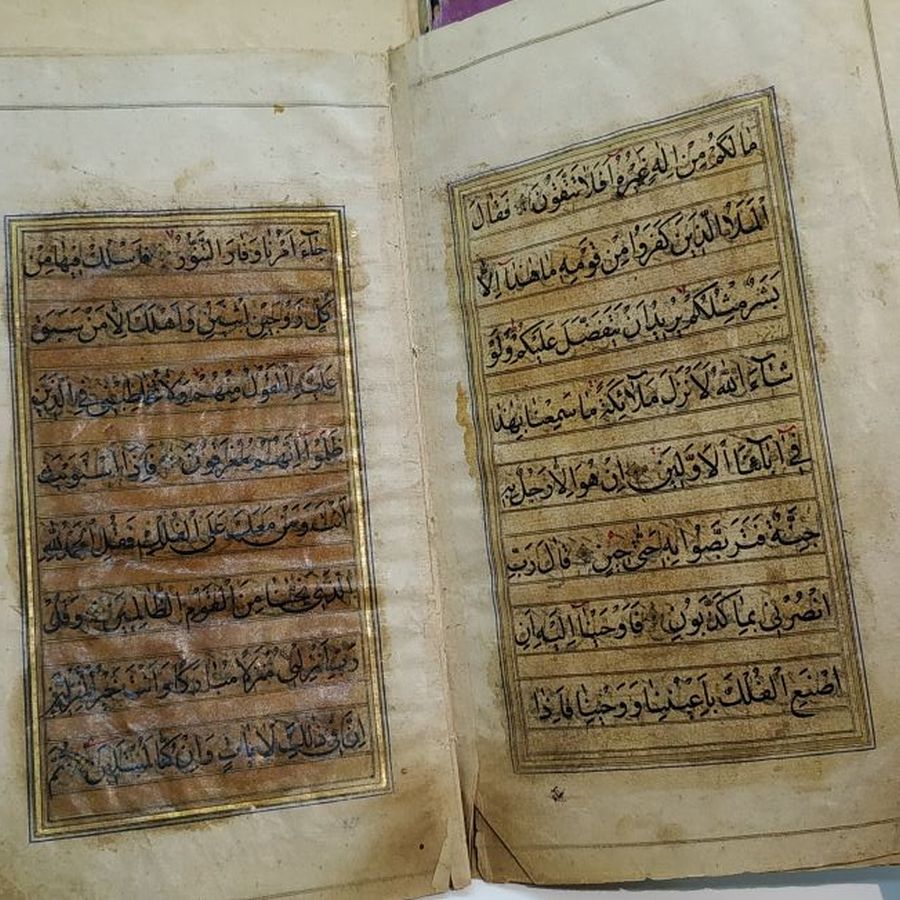 مَا لَكُمْ مِنْ اِلٰهٍ غَيْرُهُ اَفَلَا تَتَّقُونَ فَقَالَ
الْمَلَاُ الَّذِينَ كَفَرُوا مِنْ قَوْمِهِ مَا هٰذَا اِلَّا
بَشَرٌ مِثْلُكُمْ يُرِيدُ اَنْ يَتَفَضَّلَ عَلَيْكُمْ وَلَوْ
شَاءَ اللّٰهُ لَاَنْزَلَ مَلَائِكَةً مَا سَمِعْنَا بِهٰذَا
فِي اٰبَائِنَا الْاَوَّلِينَ اِنْ هُوَ اِلَّا رَجُلٌ بِهِ
جِنَّةٌ فَتَرَبَّصُوا بِهِ حَتّٰى حِينٍ قَالَ رَبِّ
انْصُرْنِي بِمَا كَذَّبُونِ فَاَوْحَيْنَا اِلَيْهِ اَنِ
اصْنَعِ الْفُلْكَ بِاَعْيُنِنَا وَوَحْيِنَا فَاِذَا
جَاءَ اَمْرُنَا وَفَارَ التَّنُّورُ فَاسْلُكْ فِيهَا مِنْ
كُلٍّ زَوْجَيْنِ اثْنَيْنِ وَاَهْلَكَ اِلَّا مَنْ سَبَقَ
عَلَيْهِ الْقَوْلُ مِنْهُمْ وَلَا تُخَاطِبْنِي فِي الَّذِينَ
ظَلَمُوا اِنَّهُمْ مُغْرَقُونَ فَاِذَا اسْتَوَيْتَ
اَنْتَ وَمَنْ مَعَكَ عَلَى الْفُلْكِ فَقُلِ الْحَمْدُ لِلّٰهِ
الَّذِي نَجّٰىنَا مِنَ الْقَوْمِ الظَّالِمِينَ وَقُلْ
رَبِّ اَنْزِلْنِي مُنْزَلًا مُبَارَكًا وَاَنْتَ خَيْرُ الْمُنْزِلِينَ
اِنَّ فِي ذٰلِكَ لَاٰيَاتٍ وَاِنْ كُنَّا لَمُبْتَلِينَ ثُمَّ